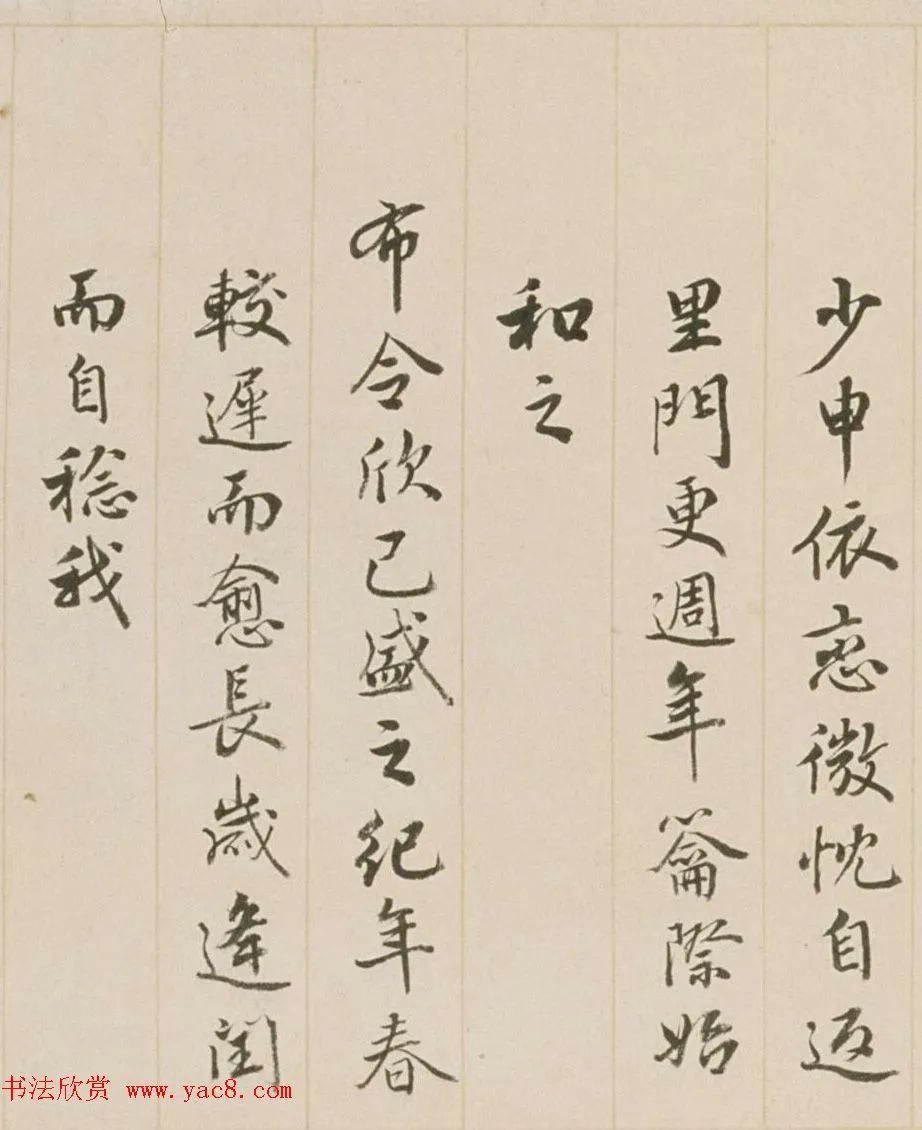 少申依恋微忱自返
里門更週年籥際始
和之
布令欣已盛之纪年春
較遲而愈長歲逢閏
而自稔我
书法欣赏 www.yac8.com